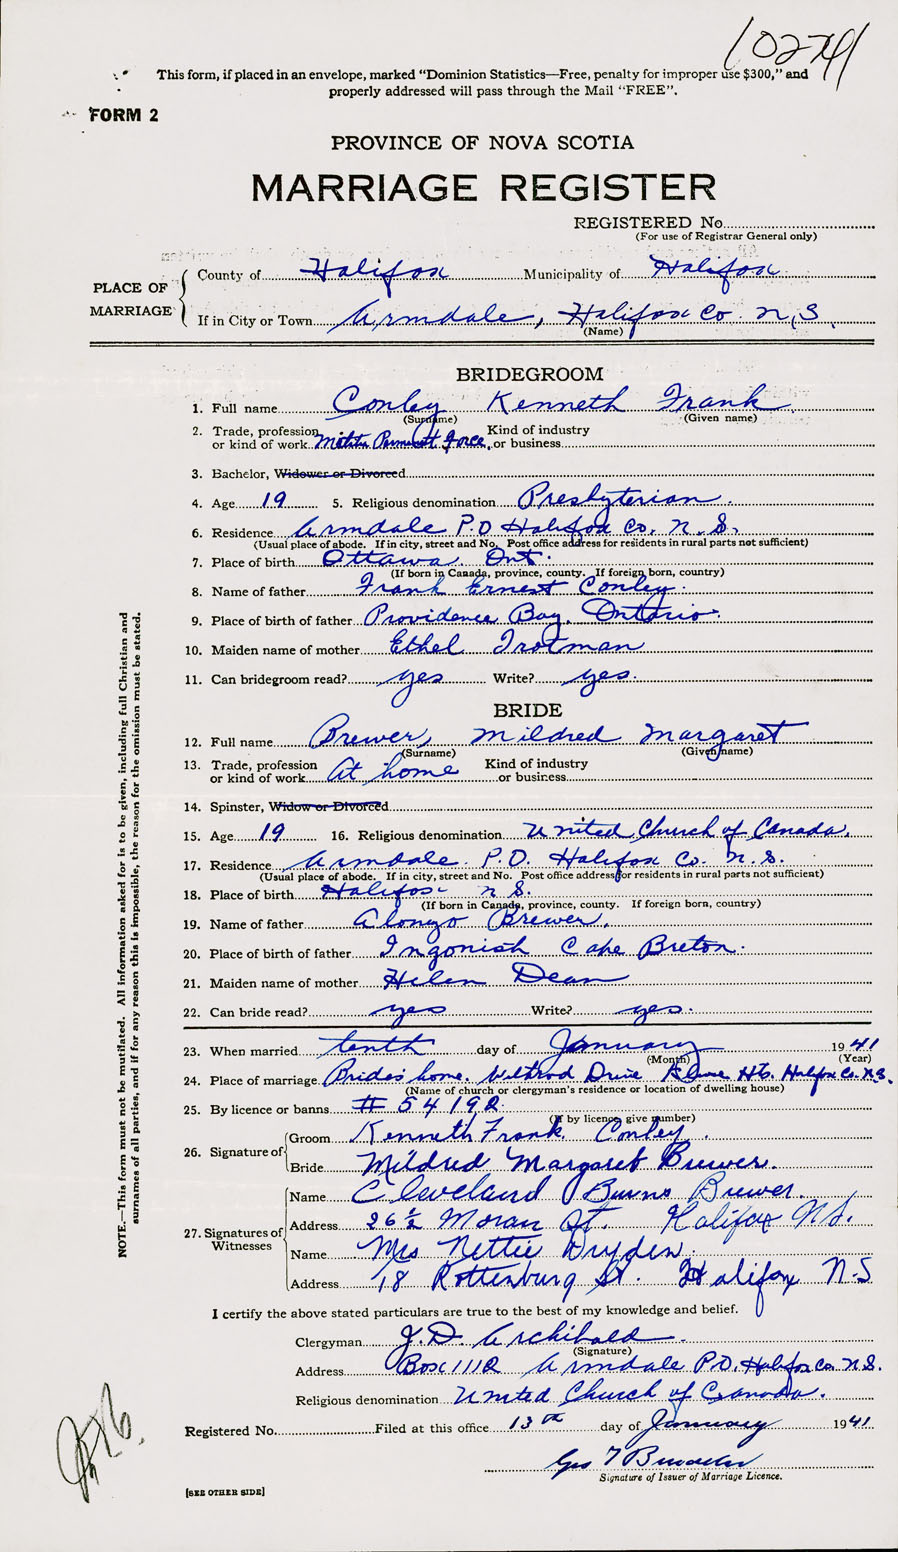 102741
This form, if placed in an envelope, marked "Dominion Statistics—Free, penalty for improper use $300," and
properly addressed will pass through the Mail "FREE".
FORM 2
PROVINCE OF NOVA SCOTIA
MARRIAGE REGISTER
REGISTERED No.
(For use of Registrar General only)
PLACE OF MARRIAGE
County of Halifax Municipality of Halifax
If in City or Town Armdale, Halifax Co. N.S.
(Name)
BRIDEGROOM
1. Full name Conley Kenneth Frank
(Surname) (Given name)
2. Trade, profession Kind of industry
or kind of work Militia Permanent Force, or business
3. Bachelor, Widower or Divorced
4. Age 19 5. Religious denomination Presbyterian.
6. Residence Armdale P.O Halifax Co. N.S.
(Usual place of abode. If in city, street and No. Post office address for residents in rural parts not sufficient)
7. Place of birth Ottawa Ont.
(If born in Canada, province, county. If foreign born, country)
8. Name of father Frank Ernest Conley.
9. Place of birth of father Providence Bay, Ontario.
10. Maiden name of mother Ethel Trotman
11. Can bridegroom read? yes Write? yes.
BRIDE
12. Full name Brewer, Mildred Margaret
(Surname) (Given name)
13. Trade, profession Kind of industry
or kind of work At home or business
14. Spinster, Widow or Divorced
15. Age 19 16. Religious denomination United Church of Canada.
17. Residence Armdale P.O. Halifax Co. N.S.
(Usual place of abode. If in city, street and No. Post office address for residents in rural parts not sufficient)
18. Place of birth Halifax N.S.
(If born in Canada, province, county. If foreign born, country)
19. Name of father Alonzo Brewer.
20. Place of birth of father Ingonish Cape Breton.
21. Maiden name of mother Helen Dean
22. Can bride read? yes Write? yes.
23. When married tenth day of January 1941
(Month) (Year)
24. Place of marriage Brides home, Drive Hts. Halifax Co. N.S.
(Name of church or clergyman's residence or location of dwelling house)
25. By licence or banns # 54192
(If by licence give number)
26. Signature of
Groom Kenneth Frank Conley.
Bride Mildred Margaret Brewer.
27. Signatures of Witnesses
Name Cleveland Burns Brewer.
Address 26½ Moran St. Halifax N.S.
Name Mrs Nettie Dryden.
Address 18 Rottenburg St. Halifax N.S
I certify the above stated particulars are true to the best of my knowledge and belief.
Clergyman J.D. Archibald.
(Signature)
Address Box 111R Armdale P.O. Halifax Co. N.S.
Religious denomination United Church of Canada.
Registered No. Filed at this office 13th day of January 1941
Geo
Signature of Issuer of Marriage Licence.
[SEE OTHER SIDE]
NOTE.—This form must not be mutilated. All information asked for is to be given, including full Christian and
surnames of all parties, and if for any reason this is impossible, the reason for the omission must be stated.